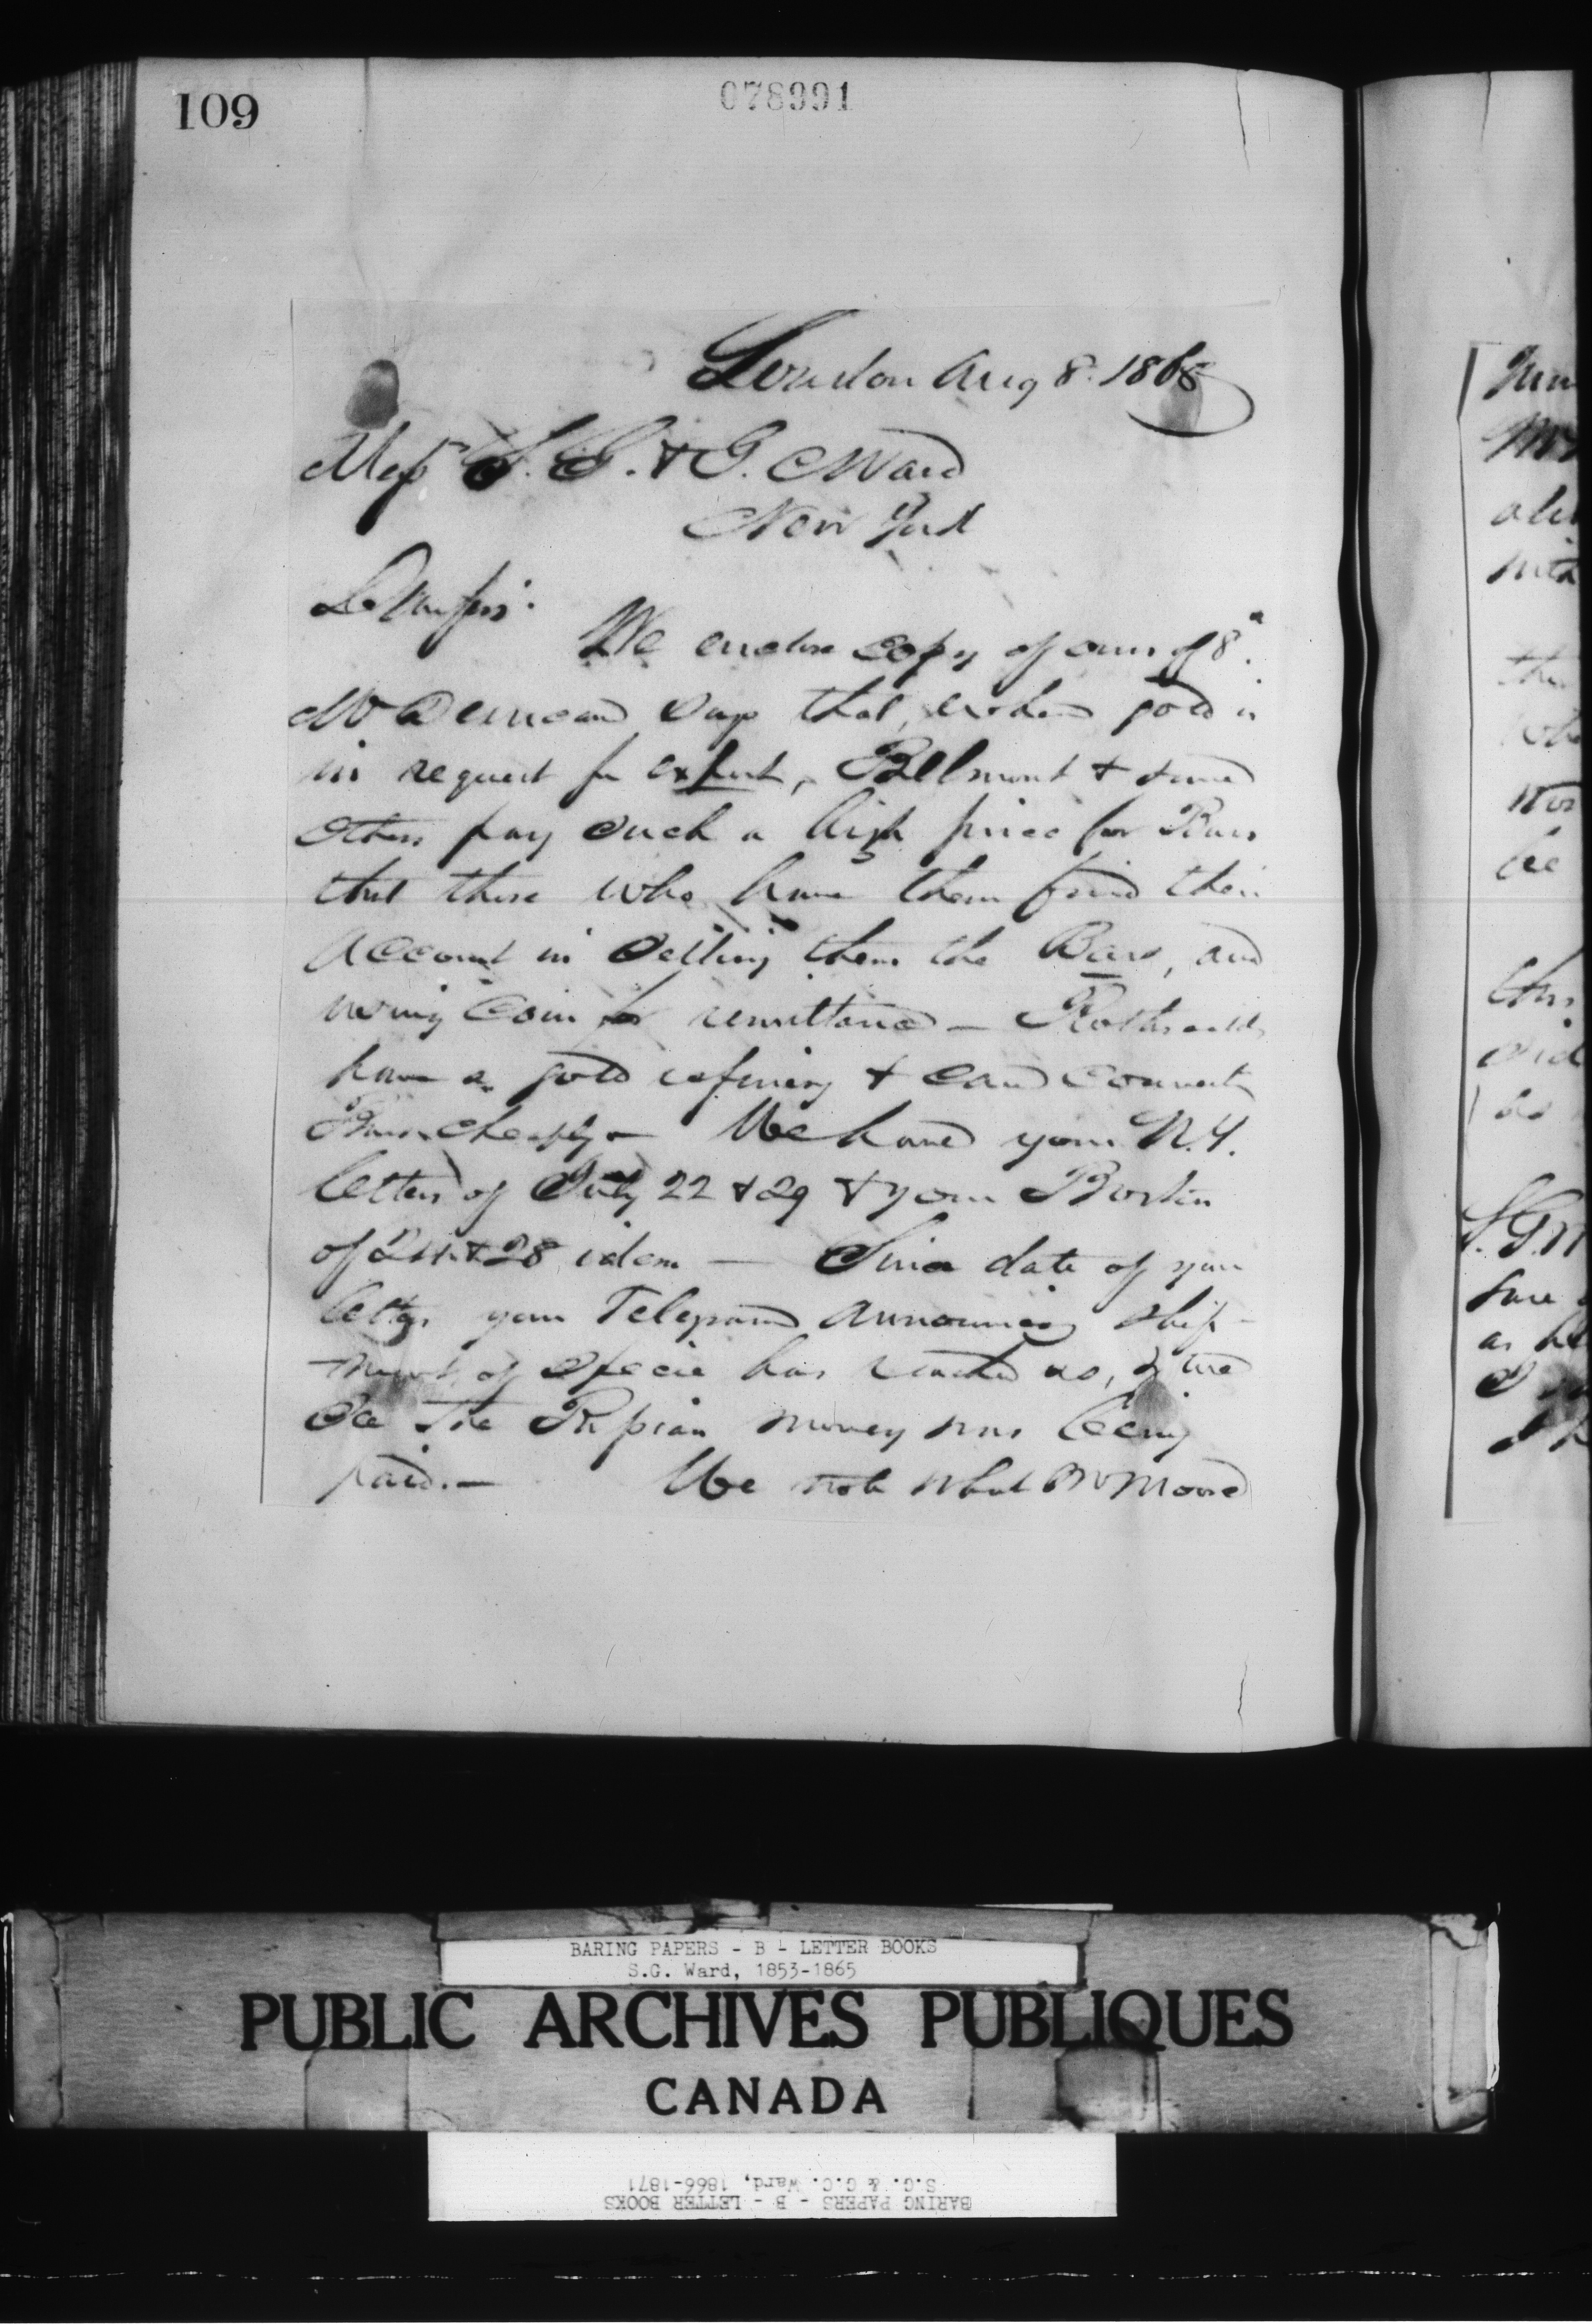 109
078991
London Aug 8. 1868
Mess S. G. & G. C Ward
New York
D Sirs
We enclose copy of ours of 8
Mr Duncan says that, when gold is
in request for export, Bellmont & some
others pay such a high price for Bars
that those who have them find their
account in selling them the Bars, and
using Coin for remittance — Rothschilds
have a gold refinery & can convert
Bars cheaply — We have your N.Y.
letters of July 22 & 29 & your Boston
of 24 & 28 idem — Since date of your
letters your Telegram announcing ship-
ment of Specie has reached us, & we
see the Russian money was being
paid. — We note what Mr Moore
S.G.
BARING PAPERS - B - LETTER BOOKS
S.G. Ward, 1853-1865
PUBLIC ARCHIVES PUBLIQUES
CANADA
BARING PAPERS - B - LETTER BOOKS
S.G. & G.C. Ward, 1866-1871